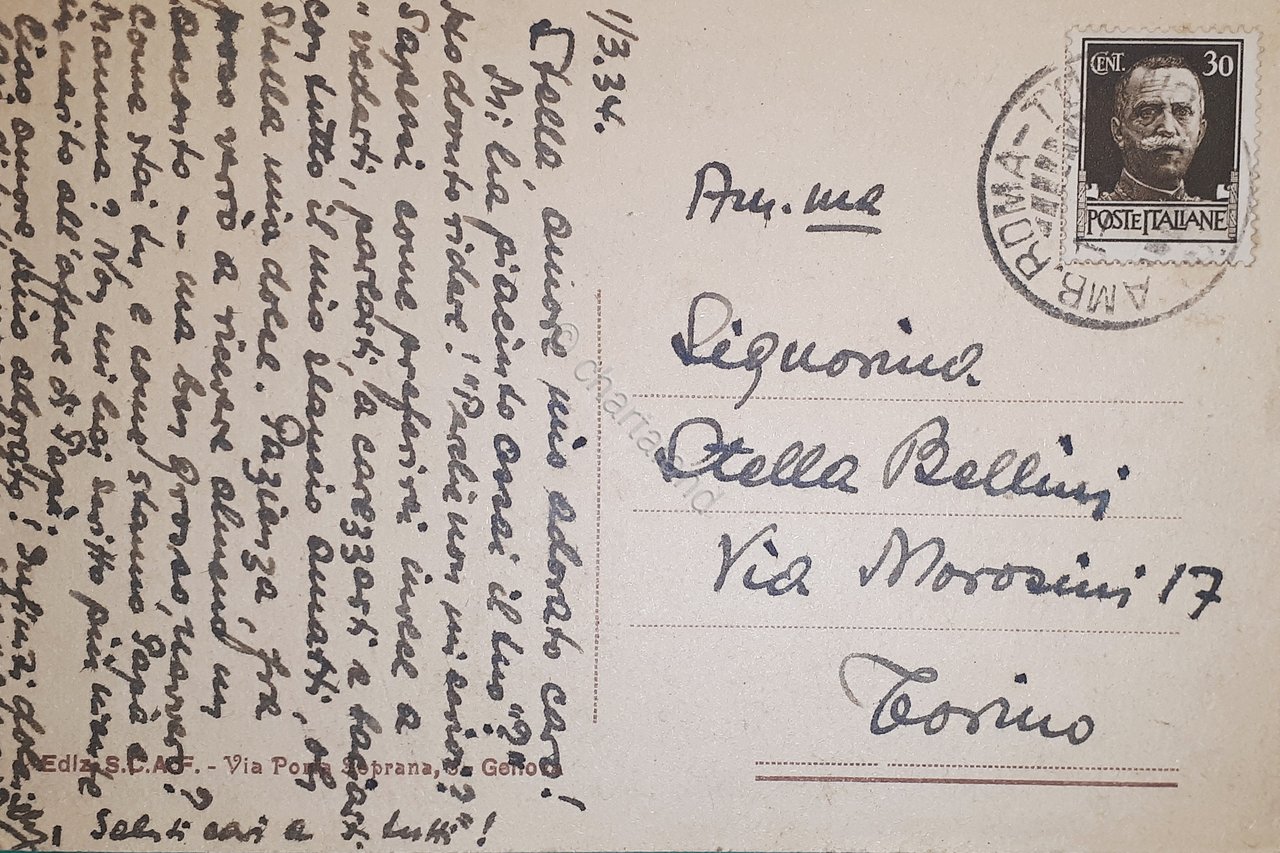 1/3.34.
Stella, amore mio adorato caro!
Mi è piaciuto assai il tuo "2"
ho dovuto ridere! "Perché non mi scrivi?"
Sapessi come preferirei invece a
vederti, parlarti, a carezzarti e baciarti
con tutto il mio slancio amarti, oh
Stella mia dolce. Pazienza, fra
poco verrò a ricevere almeno un
acconto -- ma ben grosso, nevvero?
Come stai tu, e come stanno Papà e
Mamma? Non mi hai scritto più niente
in merito all'affare di Papà.
Ciao amore mio adorato! Infiniti dolci
- Saluti cari a tutti!
Am.ma
Signorina
Stella Bellini
Via Morosini 17
Torino
CENT. 30
POSTE ITALIANE
AMB. ROMA-T
Ediz. S.C.A.F. - Via Porta Soprana, - Genova
© chartaland